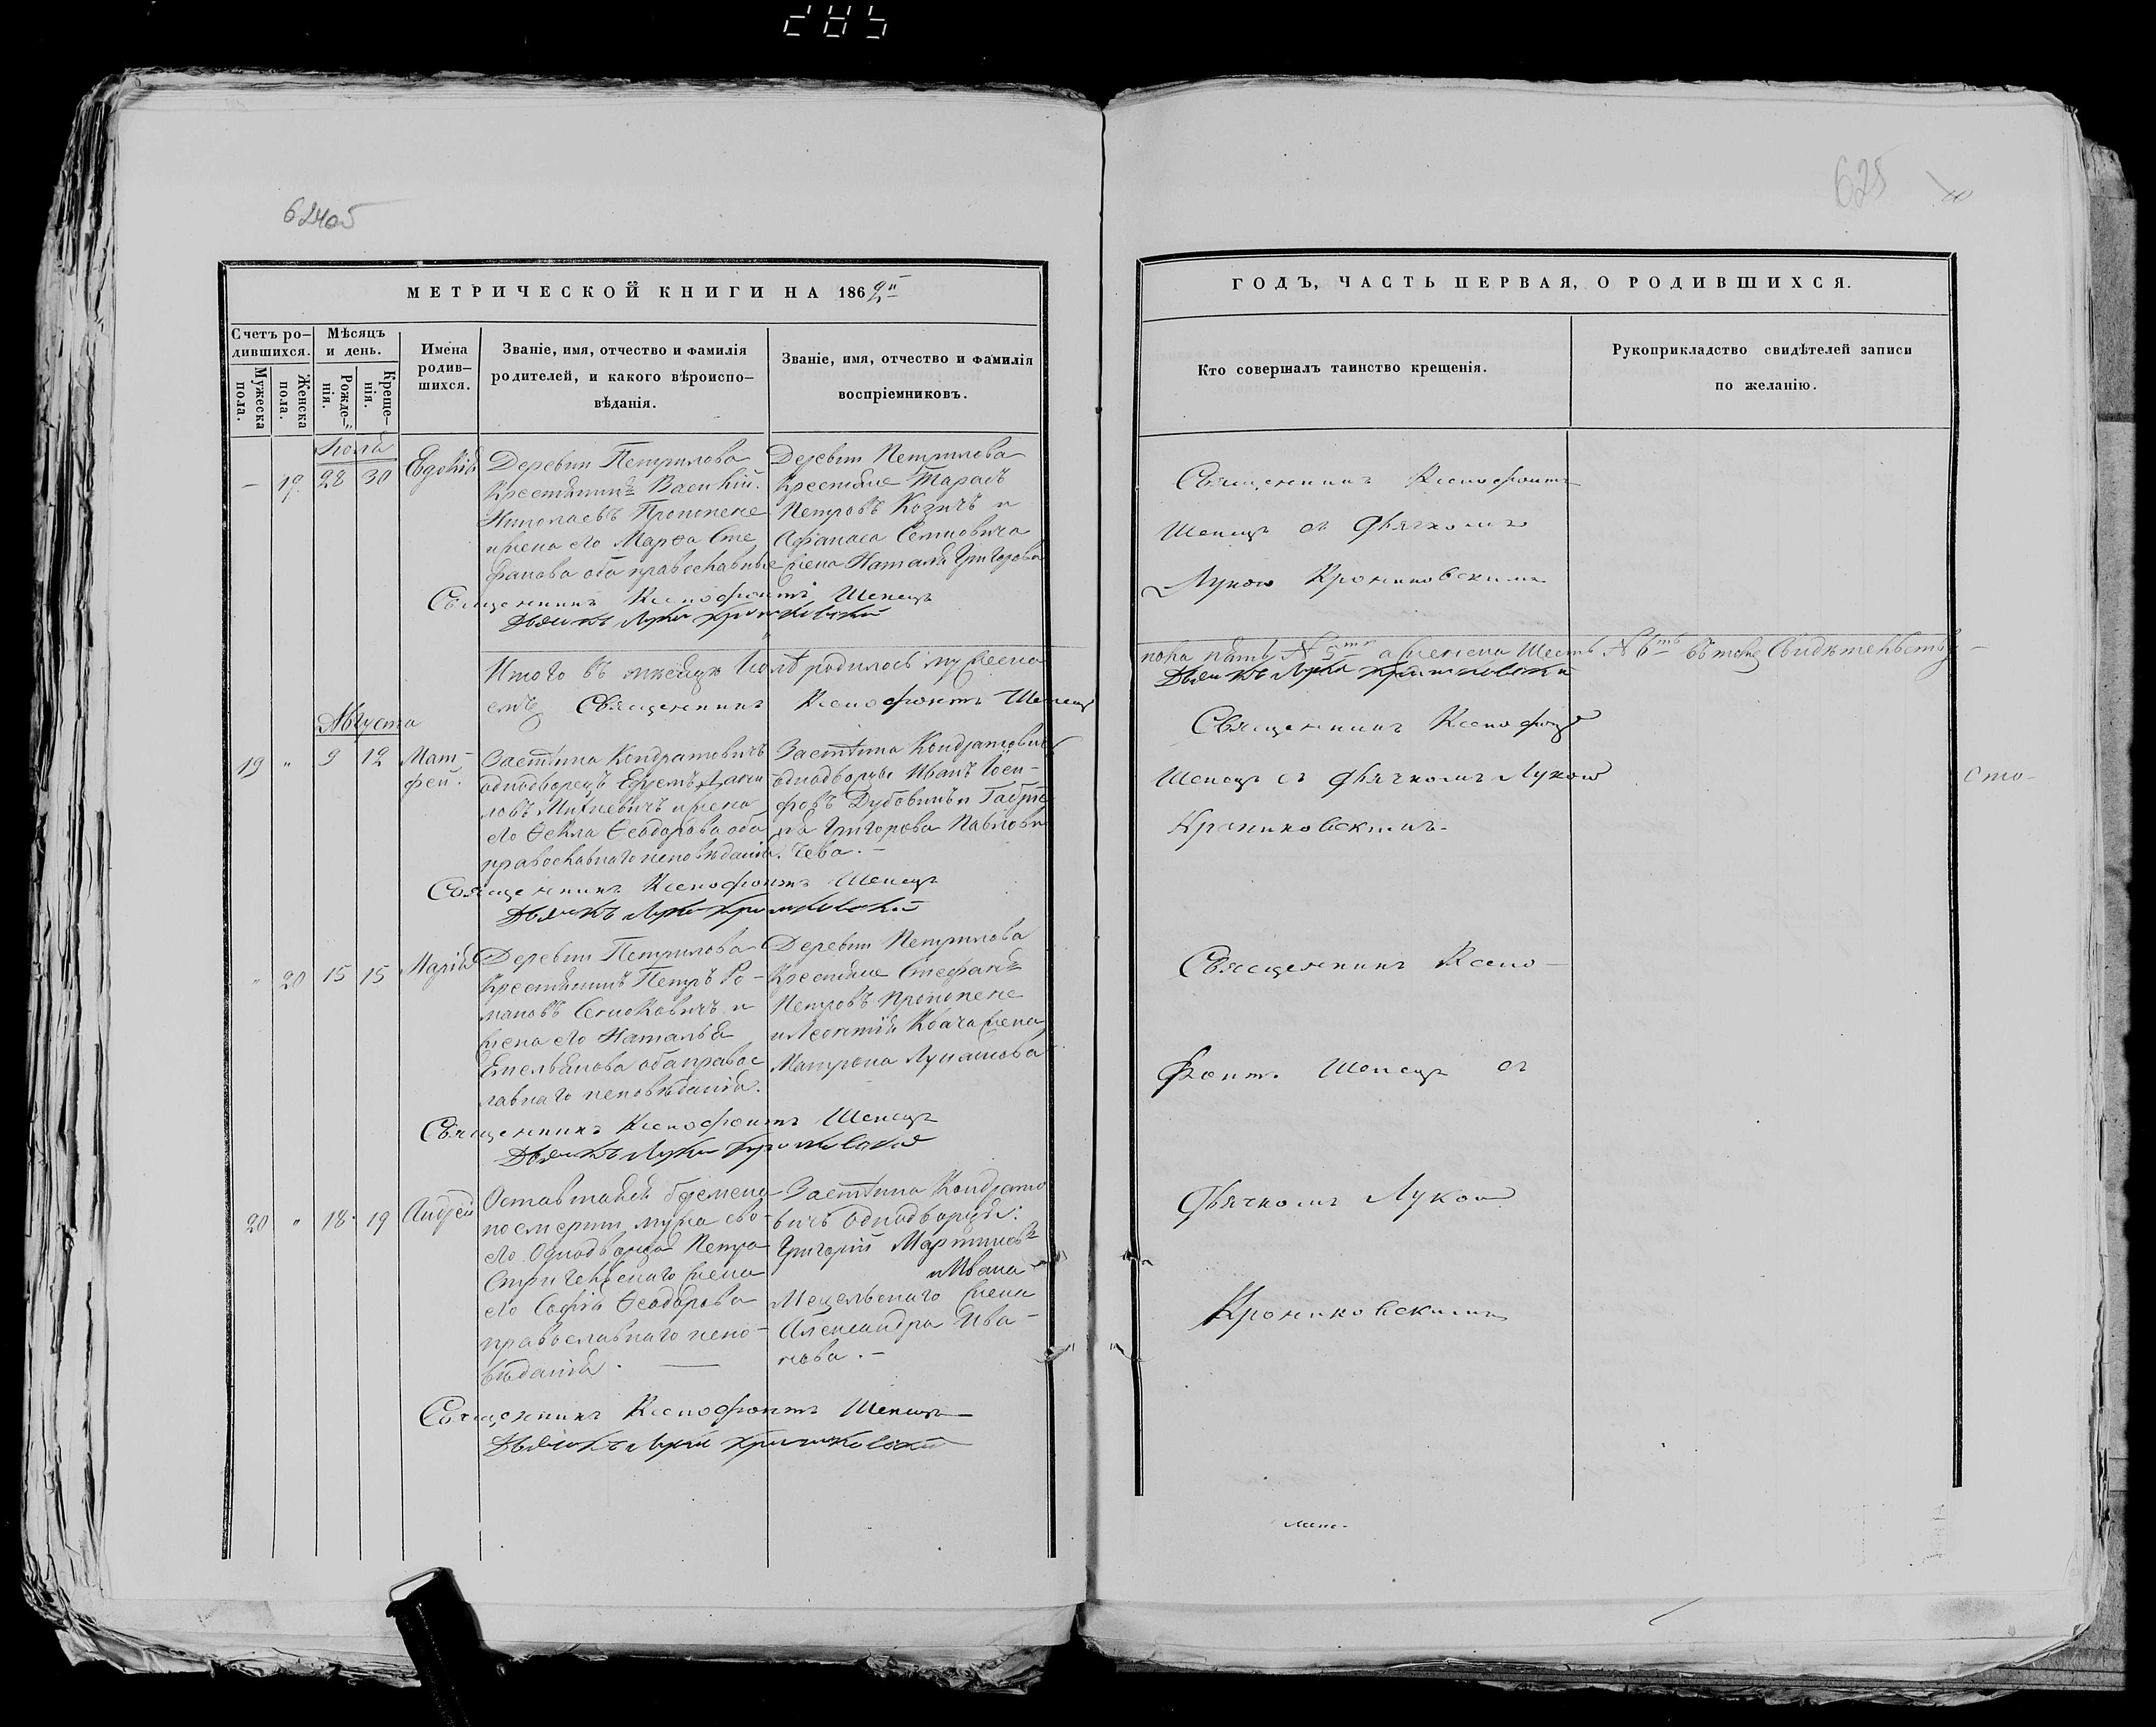 285
62405
МЕТРИЧЕСКОЙ КНИГИ НА 1862й
Счетъ ро-
дившихся.
Мужеска
пола.
Женска
пола.
Мѣсяцъ
и день.
Рожде-
нія.
Креще-
нія.
Имена
родив-
шихся.
Званіе, имя, отчество и фамилія
родителей, и какого вѣроиспо-
вѣданія.
Званіе, имя, отчество и фамилія
воспріемниковъ.
19 28 30
Деревни Петрилова
Крестянинъ Василій
Николаевъ Прокопене
и жена его Марѳа Сте
фанова оба православные
Деревни Петрилова
Крестяне Тарасъ
Петровъ Козичъ и
Афанаса Семковича
жена Наталія Григорова
Священникъ Ксенофонтъ Шепецъ
Дьячокъ Лука
Итого въ мѣсяцѣ Іюлѣ родилось мужеска
Священникъ Ксенофонтъ Шепецъ
Августа
19 " 9 12
Мат-
фей.
Застѣнка Кондратовичъ
однодворецъ Ефремъ
и жена
его Ѳекла Ѳеодорова оба
православнаго исповѣданія.
Застѣнка Кондратовичъ
однодворцы Иванъ Іоси-
фовъ Дубовикъ и
Григорова Павлови
чева.-
Священникъ Ксенофонтъ Шепецъ
Дьячокъ Лука
" 20 15 15
Марія
Деревни Петрилова
Крестянинъ Петръ Ро-
мановъ Семковичъ и
жена его Наталья
Емельянова оба правос
лавнаго исповѣданія.
Деревни Петрилова
Крестяне Стефанъ
Петровъ Прокопене
и Леонтія Квача жена
Матрона Лукашова
Священникъ Ксенофонтъ Шепецъ
Дьячокъ Лука
20 " 18 19
Андрей
Оставшаяся беремена
по смерти мужа сво-
его однодворца Петра
жена
его Софія Ѳеодорова
православнаго испо-
вѣданія.
Застѣнка Кондрато
вичъ однодворцы:
Григорій Мартиновъ
и Ивана
жена
Александра Ива-
нова.-
Священникъ Ксенофонтъ Шепецъ
Дьячокъ Лука
625
ГОДЪ, ЧАСТЬ ПЕРВАЯ, О РОДИВШИХСЯ.
Кто совершалъ таинство крещенія.
Рукоприкладство свидѣтелей записи
по желанію.
Священникъ Ксенофонтъ
Шепецъ съ дьячкомъ
Лукою
пола пять № 5ть а женска шесть № 6ть въ томъ свидѣтельству
Дьячокъ Лука
Священникъ Ксенофонтъ
Шепецъ съ дьячкомъ Лукою
Священникъ Ксено-
фонтъ Шепецъ съ
дьячкомъ Лукою